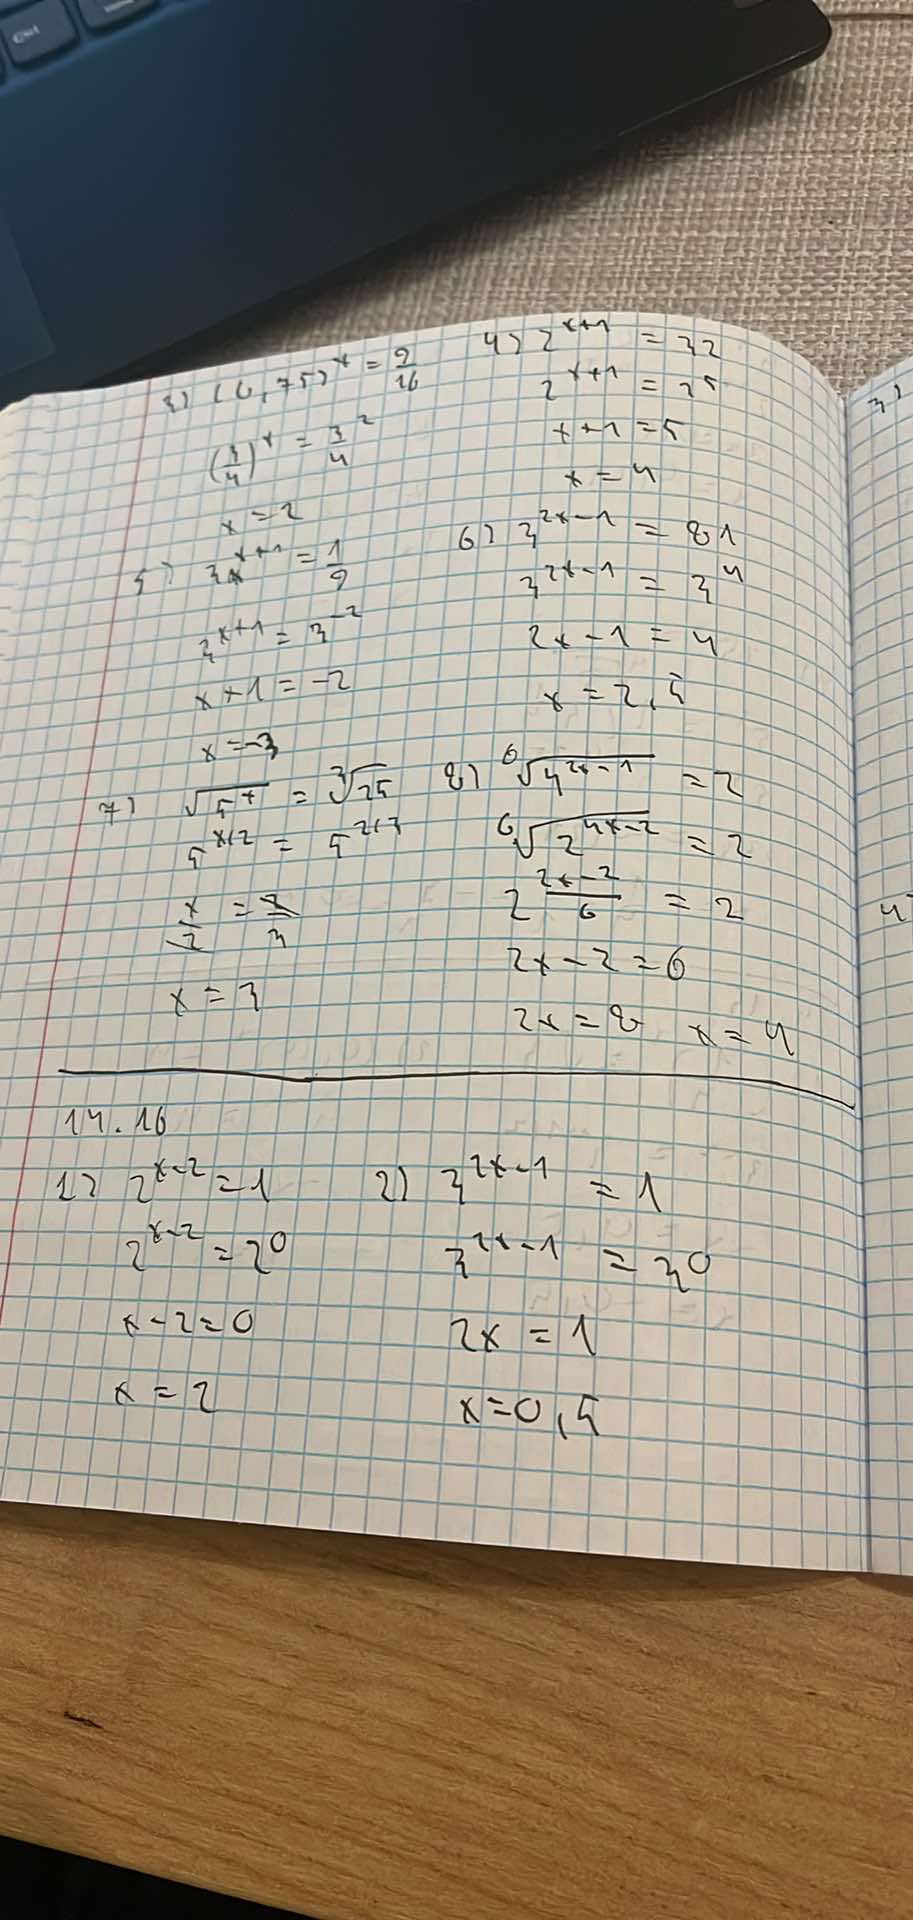 Ctrl
3) (0,75)^x = 9/16
(3/4)^x = 3/4^2
x = 2
4) 2^(x+1) = 32
2^(x+1) = 2^5
x+1 = 5
x = 4
5) 3^(x+1) = 1/9
3^(x+1) = 3^(-2)
x+1 = -2
x = -3
6) 3^(2x-1) = 81
3^(2x-1) = 3^4
2x-1 = 4
x = 2,5
7) √(5^x) = ∛25
5^(x/2) = 5^(2/3)
x/2 = 2/3
x = 3
8) ⁶√(4^(2x-1)) = 2
⁶√(2^(4x-2)) = 2
2^((2x-2)/6) = 2
2x-2 = 6
2x = 8 x = 4
14.16
1) 2^(x-2) = 1
2^(x-2) = 2^0
x-2 = 0
x = 2
2) 3^(2x-1) = 1
3^(2x-1) = 3^0
2x = 1
x = 0,5
3)